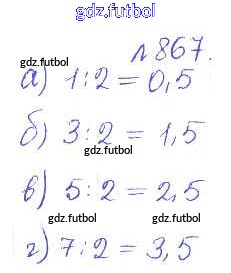 gdz.futbol
№867.
gdz.futbol
gdz.futbol
а) 1:2 = 0,5
б) 3:2 = 1,5
gdz.futbol
в) 5:2 = 2,5
gdz.futbol
gdz.futbol
г) 7:2 = 3,5